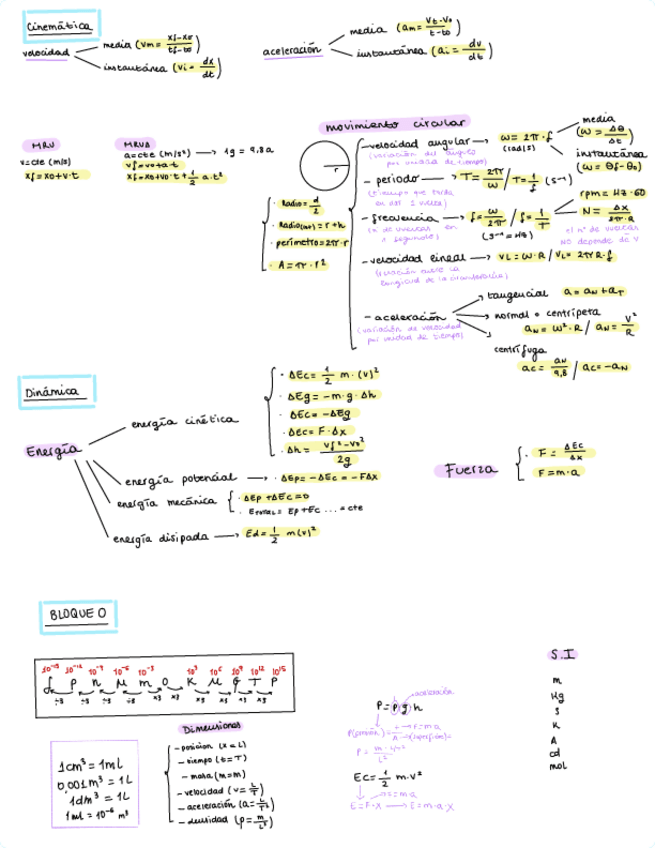 Cinemática
velocidad
media (Vm = xf-xo / tf-to)
instantánea (Vi = dx / dt)
aceleración
media (am = Vt-Vo / t-to)
instantánea (ai = dv / dt)
MRU
v=cte (m/s)
xf=xo+v·t
MRUA
a=cte (m/s²) → 1g = 9,8a
vf=vo+a·t
xf=xo+vo·t+1/2 a·t²
movimiento circular
r
· Radio = d/2
· Radio = r+h
· perímetro=2π·r
· A=π·r²
-velocidad angular → ω=2π·f
(rad/s)
(variación del ángulo
por unidad de tiempo)
media
(ω = Δθ / Δt)
instantánea
(ω = θf-θo)
-periodo → T=2π/ω / T=1/f (s⁻¹)
(tiempo que tarda
en dar 1 vuelta)
-frecuencia → f=ω/2π / f=1/T
(s⁻¹=Hz)
(n de vueltas en
1 segundo)
rpm= Hz·60
N = Δx / 2π·R
el nº de vueltas
no depende de v
-velocidad lineal → VL=ω·R / VL=2πR·f
(relación entre la
longitud de la circunferencia)
-aceleración
(variación de velocidad
por unidad de tiempo)
tangencial a=aN+aT
normal o centrípeta
aN=ω²·R / aN=V²/R
centrífuga
ac=aN/9,8 / ac=-aN
Dinámica
Energía
energía cinética
· ΔEc=1/2 m·(v)²
· ΔEg=-m·g·Δh
· ΔEc=-ΔEg
· ΔEc=F·Δx
· Δh=Vf²-Vo² / 2g
energía potencial → ΔEp=-ΔEc=-FΔx
energía mecánica
· ΔEp+ΔEc=0
· Etotal=Ep+Ec ...=cte
energía disipada → Ed=1/2 m(v)²
Fuerza
· F=ΔEc / Δx
F=m·a
BLOQUE 0
10⁻¹⁵ 10⁻¹² 10⁻⁹ 10⁻⁶ 10⁻³ 10³ 10⁶ 10⁹ 10¹² 10¹⁵
f p n μ m 0 K M G T P
÷3 ÷3 ÷3 ÷3 ÷3 x3 x3 x3 x3 x3
1cm³=1mL
0,001m³=1L
1dm³=1L
1mL=10⁻⁶ m³
Dimensiones
-posición (x=L)
-tiempo (t=T)
-masa (m=m)
-velocidad (v=L/T)
-aceleración (a=L/T²)
-densidad (ρ=m/L³)
aceleración
P=ρgh
P(presión)=
F=m·a
A→(superficie)=
Ec=1/2 m·v²
F=m·a
E=F·x → E=m·a·x
S.I
m
Kg
s
K
A
cd
mol